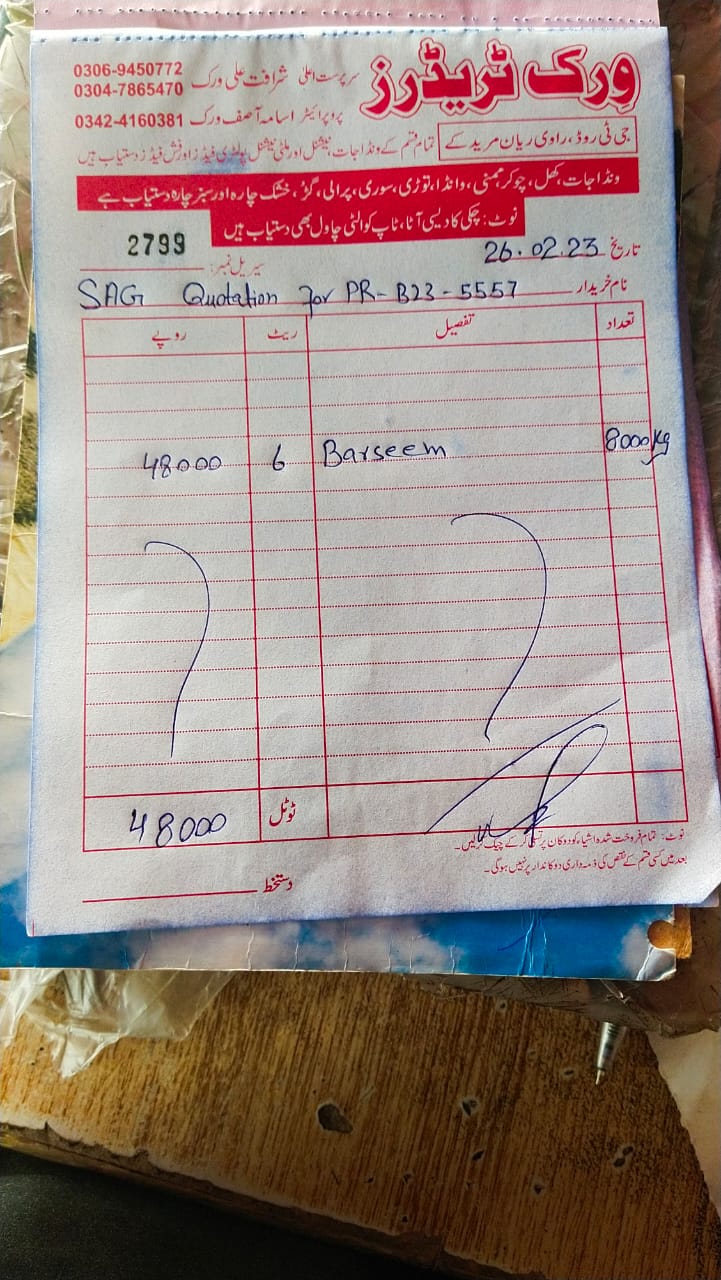 ورک ٹریڈرز
سرپرست اعلیٰ شرافت علی ورک 0306-9450772
0304-7865470
پروپرائیٹر اسامہ آصف ورک 0342-4160381
جی ٹی روڈ، راوی ریان مریدکے
تمام قسم کے ونڈا جات، نیشنل اور ملٹی نیشنل پولٹری فیڈز اور فش فیڈز دستیاب ہیں
ونڈا جات، کھل، چوکر، ممنی، وانڈا، توڑی، سوری، پرالی، گڑ، خشک چارہ اور سبز چارہ دستیاب ہے
نوٹ: چکی کا دیسی آٹا، ٹاپ کوالٹی چاول بھی دستیاب ہیں
تاریخ 26.02.23
سیریل نمبر: 2799
نام خریدار SAG Quotation for PR-B23-5557
تعداد تفصیل ریٹ روپے
8000kg Barseem 6 48000
ٹوٹل 48000
نوٹ: تمام فروخت شدہ اشیاء کو دوکان پر تسلی کر کے چیک کرلیں۔
بعد میں کسی قسم کے نقص کی ذمہ داری دوکاندار پر نہیں ہوگی۔
دستخط